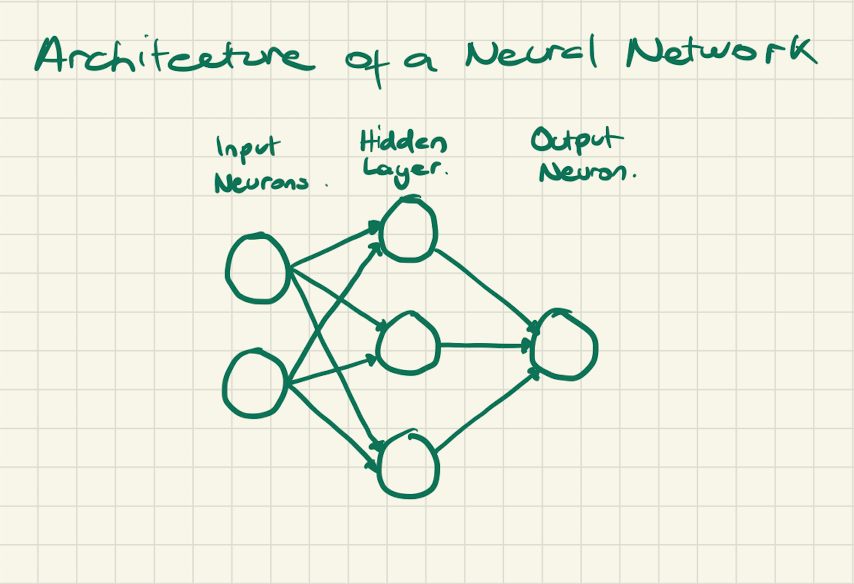 Architecture of a Neural Network
Input
Neurons.
Hidden
Layer.
Output
Neuron.